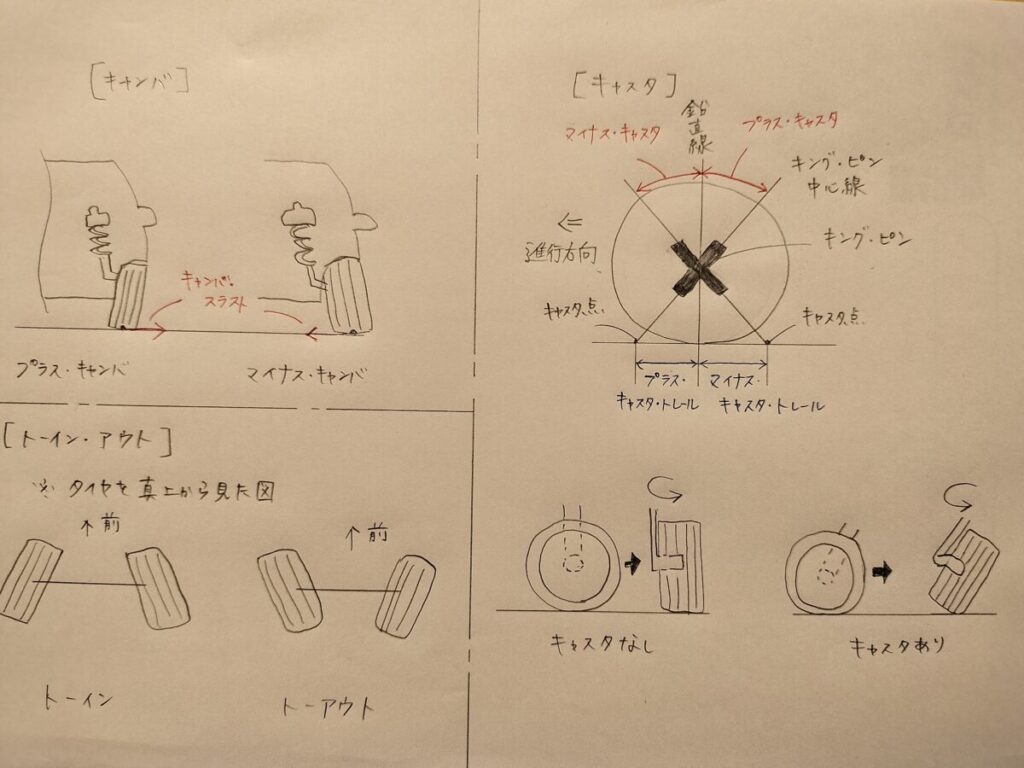 [キャンバ]
キャンバ・
スラスト
プラス・キャンバ
マイナス・キャンバ
[トーイン・アウト]
※ タイヤを真上から見た図
↑前
↑前
トーイン
トーアウト
[キャスタ]
鉛直線
マイナス・キャスタ
プラス・キャスタ
キング・ピン
中心線
⇐
進行方向
キング・ピン
キャスタ点
キャスタ点
プラス・
キャスタ・トレール
マイナス・
キャスタ・トレール
キャスタなし
キャスタあり